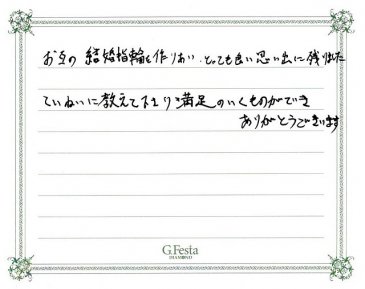 お互の 結婚指輪を作りあい、とっても良い思い出に残りました
ていねいに教えて下さり満足のいくものができ
ありがとうございます
G.Festa
DIAMOND